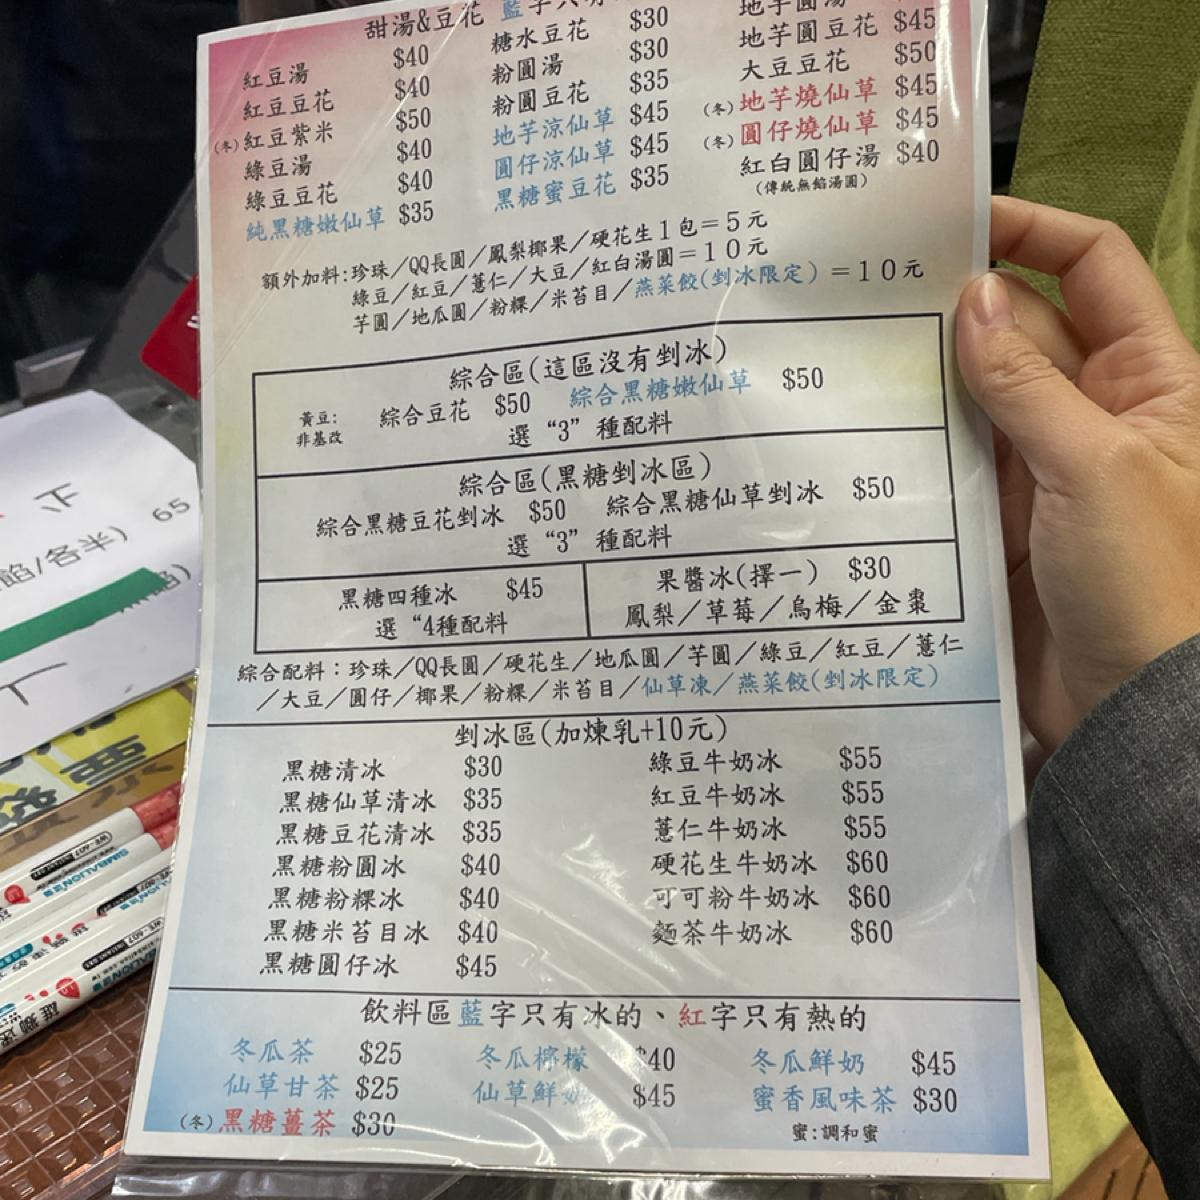 甜湯&豆花 藍字只有
紅豆湯 $40 糖水豆花 $30 地芋圓湯
紅豆豆花 $40 粉圓湯 $30 地芋圓豆花 $45
(冬)紅豆紫米 $50 粉圓豆花 $35 大豆豆花 $50
綠豆湯 $40 地芋涼仙草 $45 (冬)地芋燒仙草 $45
綠豆豆花 $40 圓仔涼仙草 $45 (冬)圓仔燒仙草 $45
純黑糖嫩仙草 $35 黑糖蜜豆花 $35 紅白圓仔湯 $40
(傳統無餡湯圓)
額外加料:珍珠/QQ長圓/鳳梨椰果/硬花生1包=5元
綠豆/紅豆/薏仁/大豆/紅白湯圓=10元
芋圓/地瓜圓/粉粿/米苔目/燕菜餃(剉冰限定)=10元
綜合區(這區沒有剉冰)
黃豆:非基改 綜合豆花 $50 綜合黑糖嫩仙草 $50
選“3”種配料
綜合區(黑糖剉冰區)
綜合黑糖豆花剉冰 $50 綜合黑糖仙草剉冰 $50
選“3”種配料
黑糖四種冰 $45 果醬冰(擇一) $30
選“4種配料 鳳梨/草莓/烏梅/金棗
綜合配料:珍珠/QQ長圓/硬花生/地瓜圓/芋圓/綠豆/紅豆/薏仁
/大豆/圓仔/椰果/粉粿/米苔目/仙草凍/燕菜餃(剉冰限定)
剉冰區(加煉乳+10元)
黑糖清冰 $30 綠豆牛奶冰 $55
黑糖仙草清冰 $35 紅豆牛奶冰 $55
黑糖豆花清冰 $35 薏仁牛奶冰 $55
黑糖粉圓冰 $40 硬花生牛奶冰 $60
黑糖粉粿冰 $40 可可粉牛奶冰 $60
黑糖米苔目冰 $40 麵茶牛奶冰 $60
黑糖圓仔冰 $45
飲料區藍字只有冰的、紅字只有熱的
冬瓜茶 $25 冬瓜檸檬 $40 冬瓜鮮奶 $45
仙草甘茶 $25 仙草鮮奶 $45 蜜香風味茶 $30
(冬)黑糖薑茶 $30 蜜:調和蜜
正
餡/各半) 65
SIMBALION
WE-607